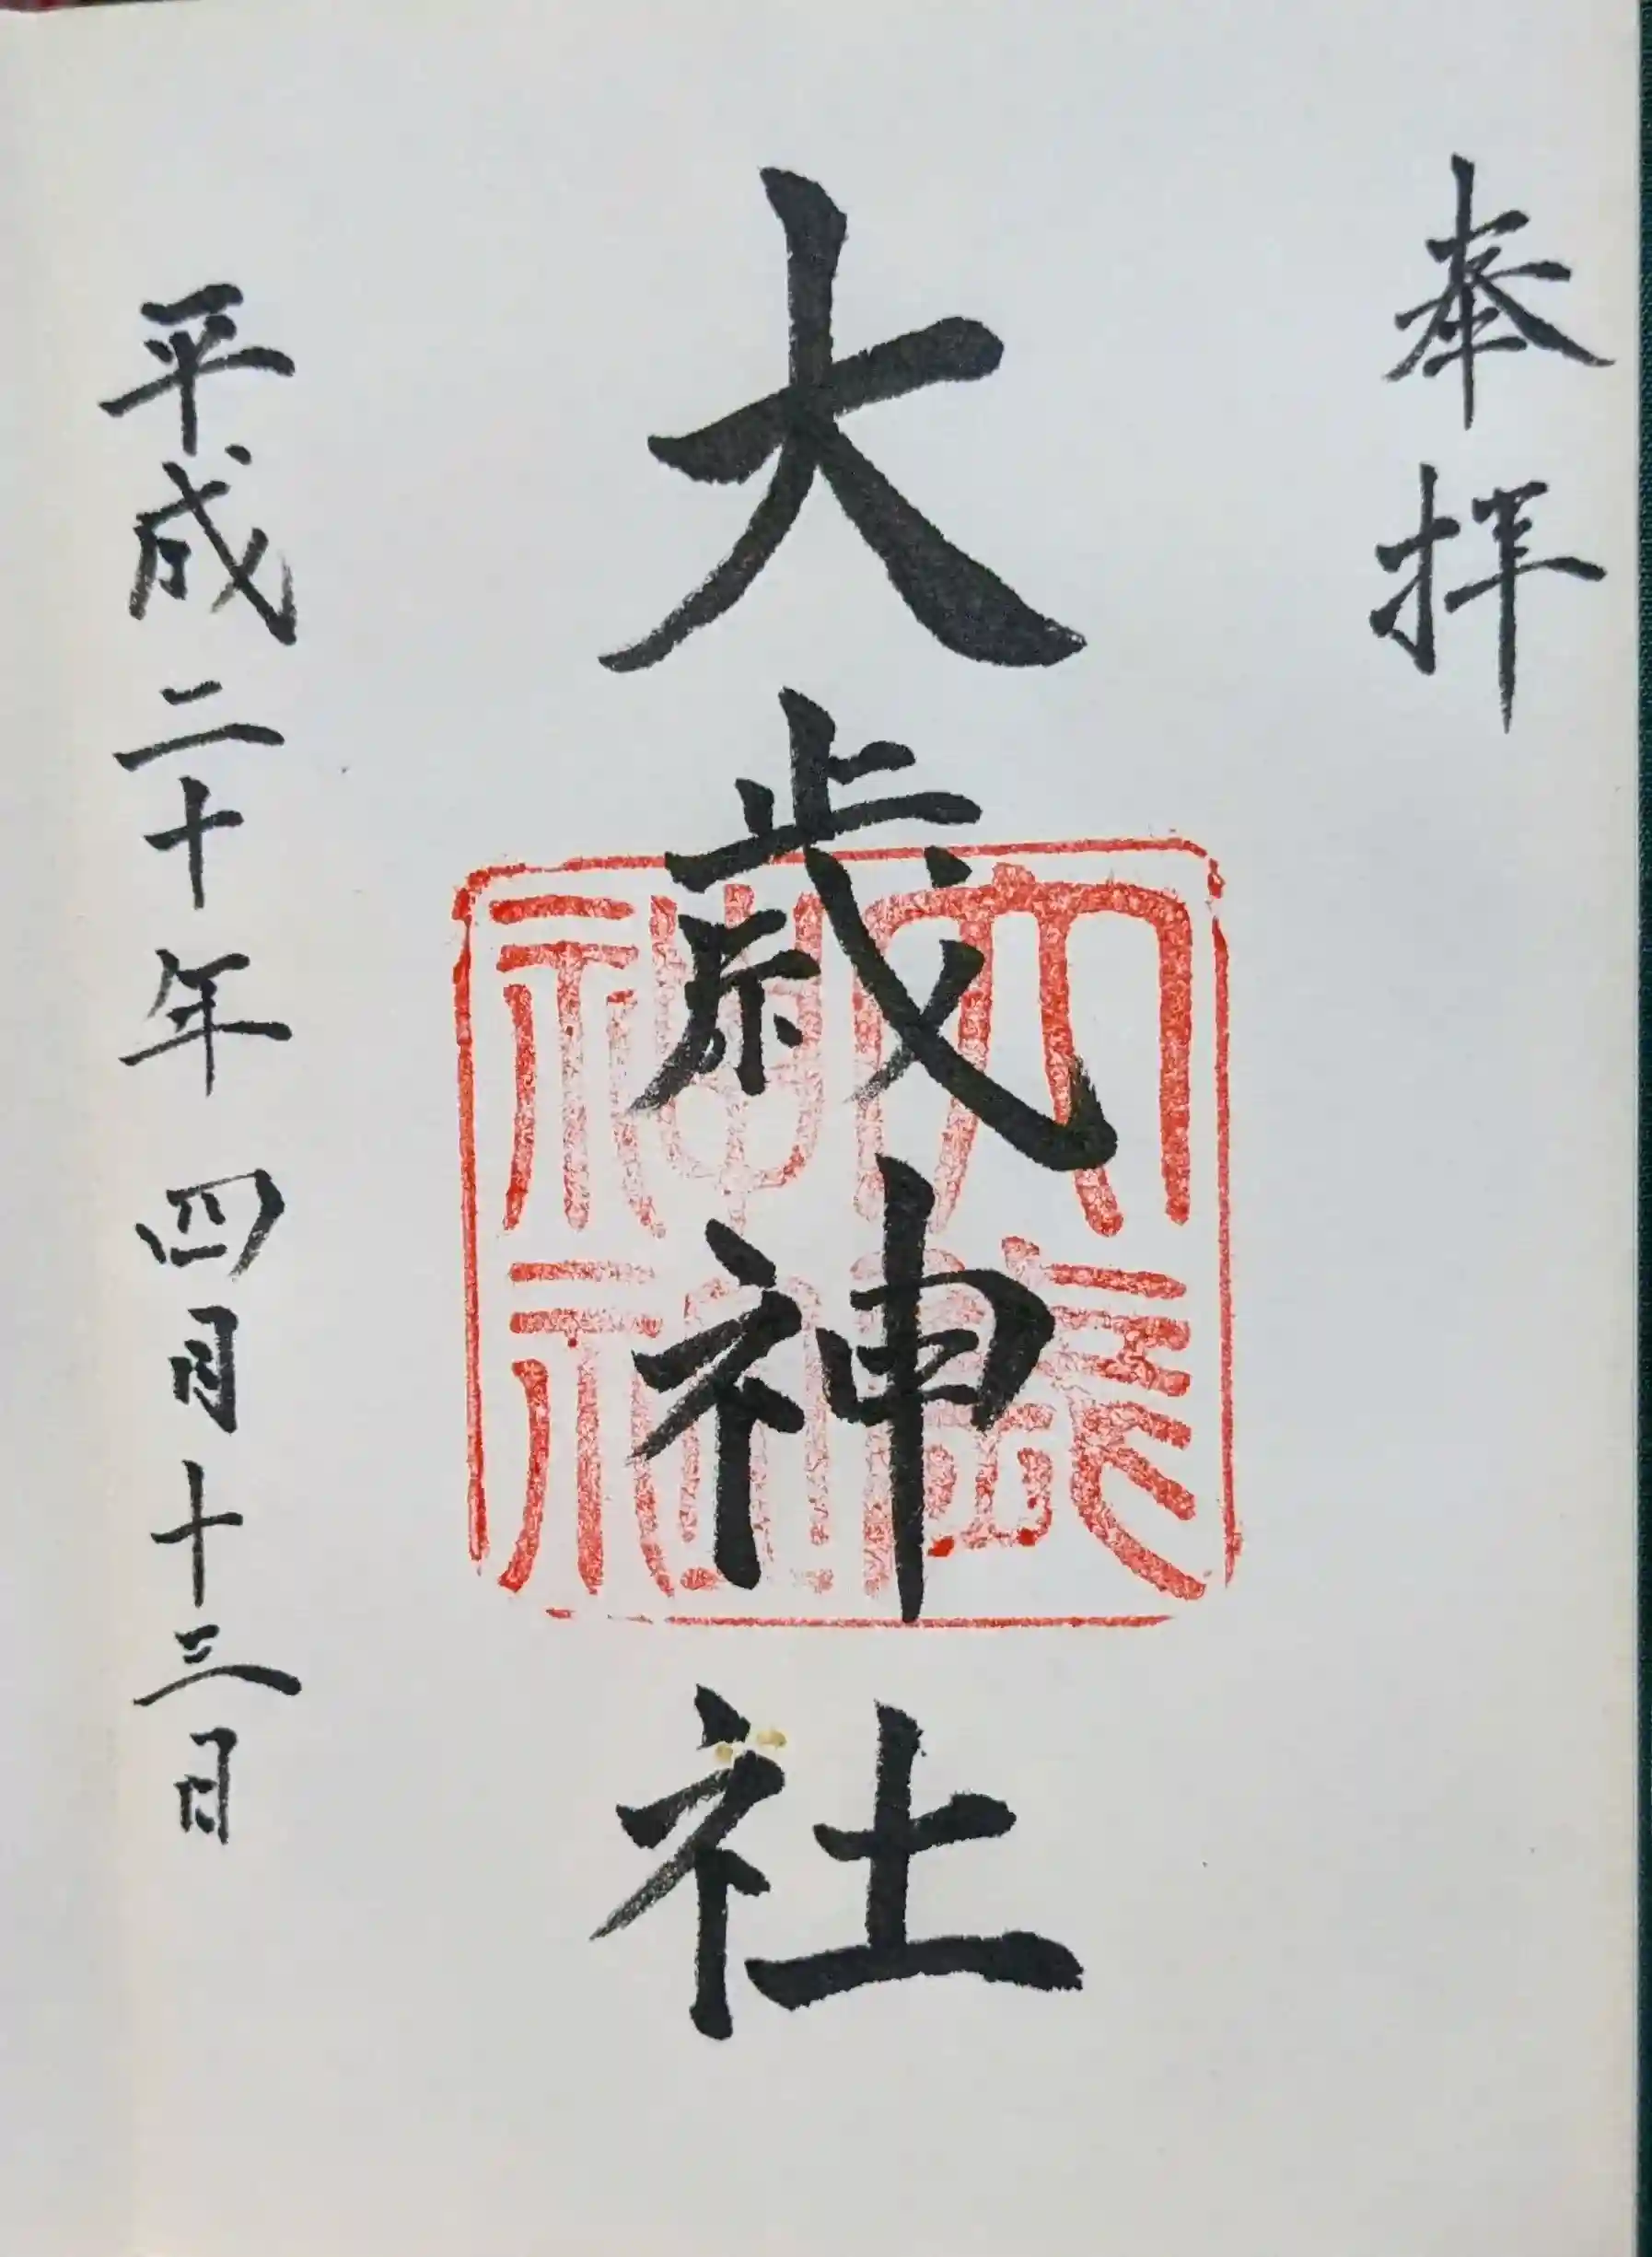 奉拝
大歳神社
大歳神社
平成二十年四月十三日